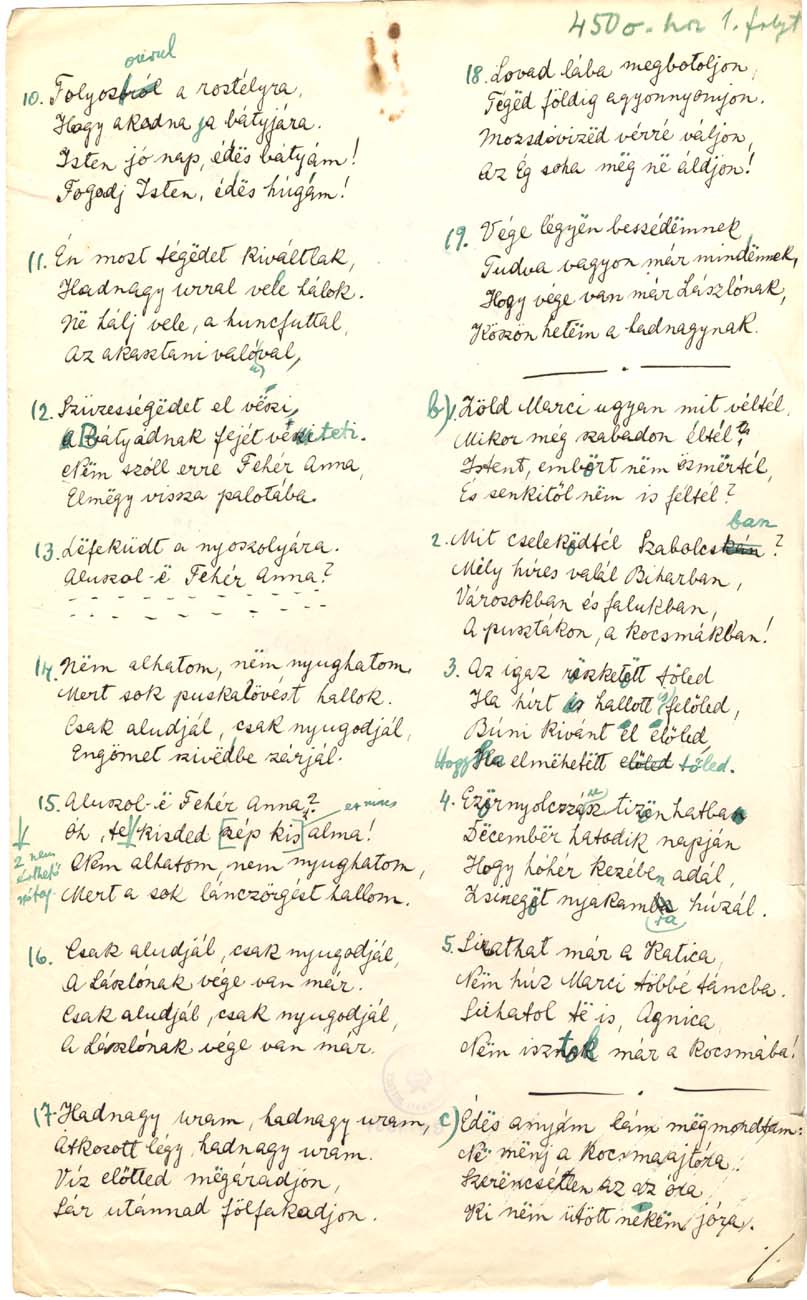 450 o.-hoz 1. folyt
10. Folyosóról a rostélyra,
Hogy akadna ja bátyjára.
Isten jó nap, édës bátyám!
Fogadj Isten, édës húgám!
11. Én most tégëdet kiváltlak,
Hadnagy urral vele hálok.
Në hálj vele, a huncfuttal,
Az akasztani valóval,
12. Szüzességëdet el vëszi,
A Bátyádnak fejét vëteti.
Nëm szóll erre Fehér Anna,
Elmëgy vissza palotába.
13. Lëfeküdt a nyoszolyára.
Aluszol-ë Fehér Anna?
14. Nëm alhatom, nëm nyughatom,
Mert sok puskalövést hallok.
Csak aludjál, csak nyugodjál,
Engömet szivedbe zárjál.
15. Aluszol-ë Fehér Anna?
Óh, te kisded [szép kis] alma!
Nem alhatom, nem nyughatom,
Mert a sok lánczörgést hallom.
16. Csak aludjál, csak nyugodjál,
A Lászlónak vége van már.
Csak aludjál, csak nyugodjál,
A Lászlónak vége van már.
17. Hadnagy uram, hadnagy uram,
Átkozott légy, hadnagy uram.
Víz előtted mëgáradjon,
Sár utánnad fölfakadjon.
18. Lovad lába megbotoljon,
Tégëd földig agyonnyomjon.
Mozsdóvizëd vérré váljon,
Az Ég soha mëg në áldjon!
19. Vége légyën beszédëmnek,
Tudva vagyon már mindënnek,
Hogy vége van már Lászlónak,
Köszönhetëm a hadnagynak.
b) 1. Zöld Marci ugyan mit véltél,
Mikor még szabadon éltél?
Istent, embört nëm ösmértél,
És senkitől nëm is féltél?
2. Mit cseleködtél Szabolcsban?
Mëly híres valál Biharban,
Városokban és falukban,
A pusztákon, a kocsmákban!
3. Az igaz rëszketött tőled
Ha hírt is hallott felőled,
Búni kivánt el előled,
Hogy elmëhetëtt tőled.
4. Ezörnyolczszáz tizönhatban
Dëcembër hatodik napján
Hogy hóhér kezében adál,
Zsinegöt nyakamra húzál.
5. Sirathat már a Katica,
Nëm húz Marci többé táncba.
Sirhatol të is, Ágnica,
Nëm isztok már a kocsmába!
c) Édës anyám lám mëgmondtam:
Në mënj a kocsmaajtóra,
Szerëncsétlen az az óra,
Ki nëm ütött nékëm jóra.